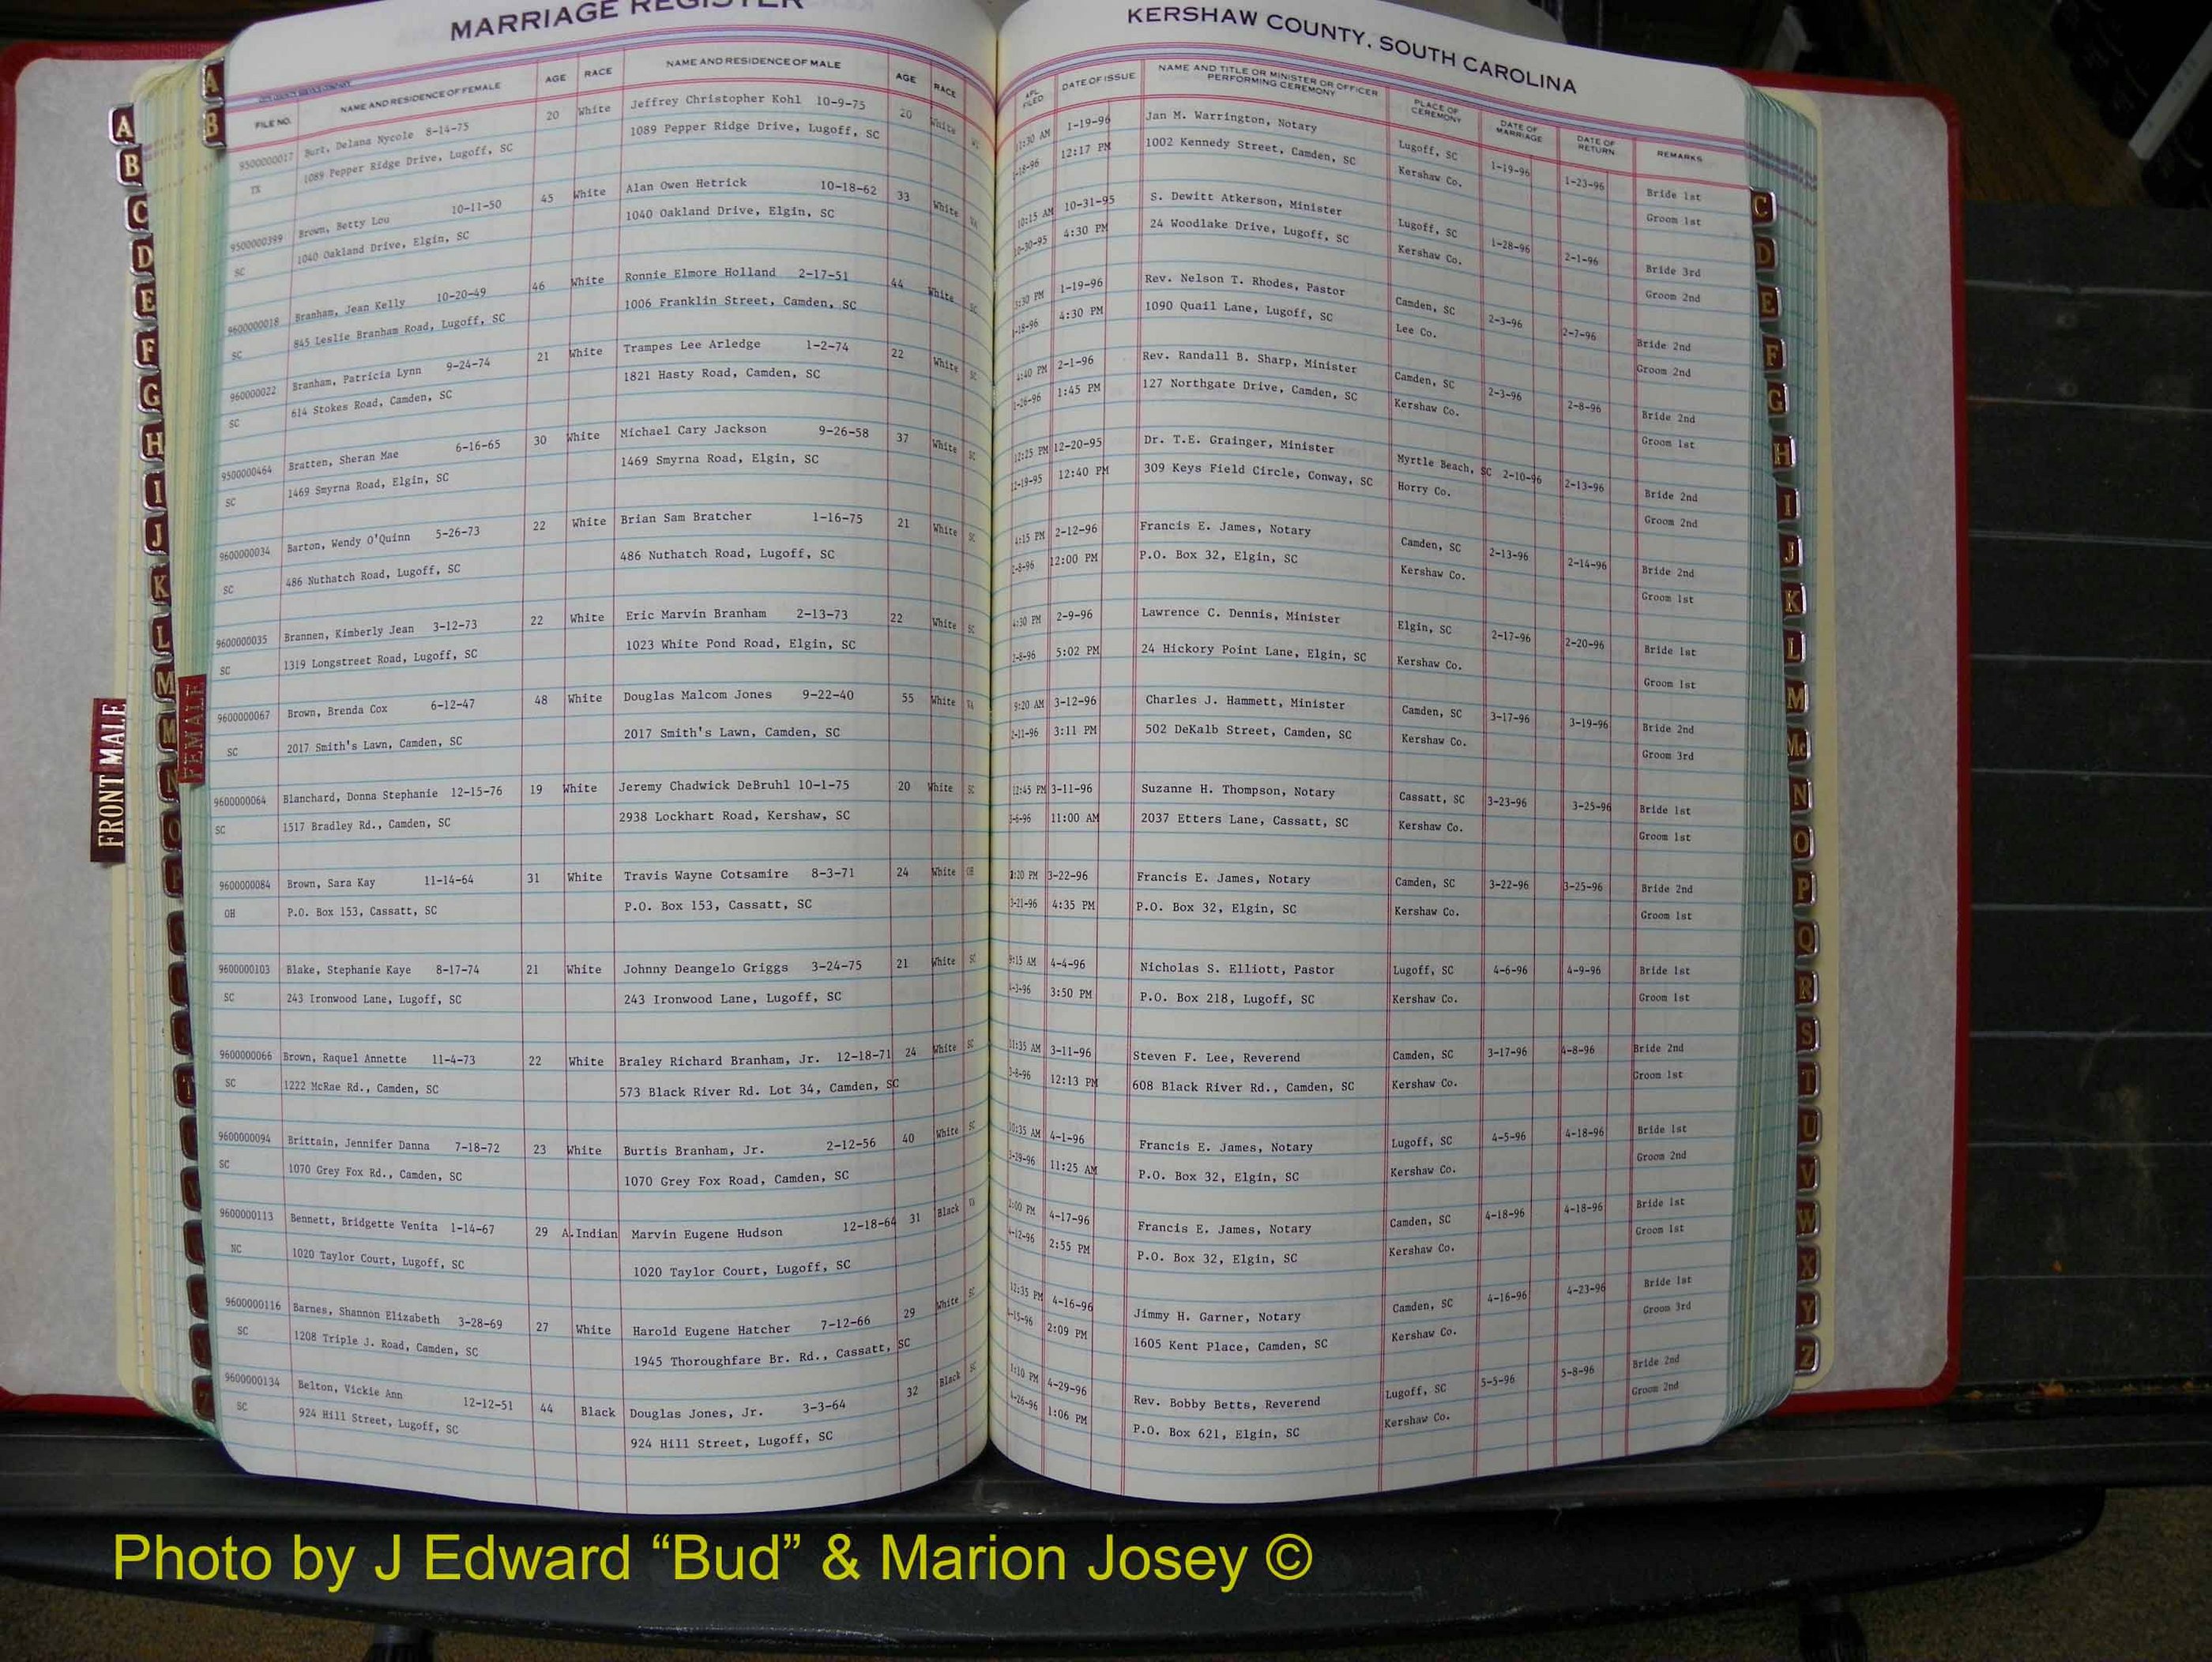 MARRIAGE REGISTER
KERSHAW COUNTY, SOUTH CAROLINA
FILE NO. NAME AND RESIDENCE OF FEMALE AGE RACE NAME AND RESIDENCE OF MALE AGE RACE APL. FILED DATE OF ISSUE NAME AND TITLE OR MINISTER OR OFFICER PERFORMING CEREMONY PLACE OF CEREMONY DATE OF MARRIAGE DATE OF RETURN REMARKS
9500000017 Burt, Delana Nycole 8-14-75 20 White Jeffrey Christopher Kohl 10-9-75 20 White 11:30 AM 1-19-96 Jan M. Warrington, Notary Lugoff, SC 1-19-96 1-23-96 Bride 1st
TX 1089 Pepper Ridge Drive, Lugoff, SC 1089 Pepper Ridge Drive, Lugoff, SC 1-18-96 12:17 PM 1002 Kennedy Street, Camden, SC Kershaw Co. Groom 1st
9500000399 Brown, Betty Lou 10-11-50 45 White Alan Owen Hetrick 10-18-62 33 White 10:15 AM 10-31-95 S. Dewitt Atkerson, Minister Lugoff, SC 1-28-96 2-1-96 Bride 3rd
SC 1040 Oakland Drive, Elgin, SC 1040 Oakland Drive, Elgin, SC 10-30-95 4:30 PM 24 Woodlake Drive, Lugoff, SC Kershaw Co. Groom 2nd
9600000018 Branham, Jean Kelly 10-20-49 46 White Ronnie Elmore Holland 2-17-51 44 White SC 3:30 PM 1-19-96 Rev. Nelson T. Rhodes, Pastor Camden, SC 2-3-96 2-7-96 Bride 2nd
SC 845 Leslie Branham Road, Lugoff, SC 1006 Franklin Street, Camden, SC 1-18-96 4:30 PM 1090 Quail Lane, Lugoff, SC Lee Co. Groom 2nd
960000022 Branham, Patricia Lynn 9-24-74 21 White Trampes Lee Arledge 1-2-74 22 White SC 4:40 PM 2-1-96 Rev. Randall B. Sharp, Minister Camden, SC 2-3-96 2-8-96 Bride 2nd
SC 614 Stokes Road, Camden, SC 1821 Hasty Road, Camden, SC 1-26-96 1:45 PM 127 Northgate Drive, Camden, SC Kershaw Co. Groom 1st
9500000464 Bratten, Sheran Mae 6-16-65 30 White Michael Cary Jackson 9-26-58 37 White SC 12:25 PM 12-20-95 Dr. T.E. Grainger, Minister Myrtle Beach, SC 2-10-96 2-13-96 Bride 2nd
SC 1469 Smyrna Road, Elgin, SC 1469 Smyrna Road, Elgin, SC 12-19-95 12:40 PM 309 Keys Field Circle, Conway, SC Horry Co. Groom 2nd
9600000034 Barton, Wendy O'Quinn 5-26-73 22 White Brian Sam Bratcher 1-16-75 21 White SC 4:15 PM 2-12-96 Francis E. James, Notary Camden, SC 2-13-96 2-14-96 Bride 2nd
SC 486 Nuthatch Road, Lugoff, SC 486 Nuthatch Road, Lugoff, SC 2-8-96 12:00 PM P.O. Box 32, Elgin, SC Kershaw Co. Groom 1st
9600000035 Brannen, Kimberly Jean 3-12-73 22 White Eric Marvin Branham 2-13-73 22 White SC 4:30 PM 2-9-96 Lawrence C. Dennis, Minister Elgin, SC 2-17-96 2-20-96 Bride 1st
SC 1319 Longstreet Road, Lugoff, SC 1023 White Pond Road, Elgin, SC 2-8-96 5:02 PM 24 Hickory Point Lane, Elgin, SC Kershaw Co. Groom 1st
9600000067 Brown, Brenda Cox 6-12-47 48 White Douglas Malcom Jones 9-22-40 55 White VA 9:20 AM 3-12-96 Charles J. Hammett, Minister Camden, SC 3-17-96 3-19-96 Bride 2nd
SC 2017 Smith's Lawn, Camden, SC 2017 Smith's Lawn, Camden, SC 2-11-96 3:11 PM 502 DeKalb Street, Camden, SC Kershaw Co. Groom 3rd
9600000064 Blanchard, Donna Stephanie 12-15-76 19 White Jeremy Chadwick DeBruhl 10-1-75 20 White SC 12:45 PM 3-11-96 Suzanne H. Thompson, Notary Cassatt, SC 3-23-96 3-25-96 Bride 1st
SC 1517 Bradley Rd., Camden, SC 2938 Lockhart Road, Kershaw, SC 3-6-96 11:00 AM 2037 Etters Lane, Cassatt, SC Kershaw Co. Groom 1st
9600000084 Brown, Sara Kay 11-14-64 31 White Travis Wayne Cotsamire 8-3-71 24 White OH 1:20 PM 3-22-96 Francis E. James, Notary Camden, SC 3-22-96 3-25-96 Bride 2nd
OH P.O. Box 153, Cassatt, SC P.O. Box 153, Cassatt, SC 3-21-96 4:35 PM P.O. Box 32, Elgin, SC Kershaw Co. Groom 1st
9600000103 Blake, Stephanie Kaye 8-17-74 21 White Johnny Deangelo Griggs 3-24-75 21 White SC 9:15 AM 4-4-96 Nicholas S. Elliott, Pastor Lugoff, SC 4-6-96 4-9-96 Bride 1st
SC 243 Ironwood Lane, Lugoff, SC 243 Ironwood Lane, Lugoff, SC 4-3-96 3:50 PM P.O. Box 218, Lugoff, SC Kershaw Co. Groom 1st
9600000066 Brown, Raquel Annette 11-4-73 22 White Braley Richard Branham, Jr. 12-18-71 24 White SC 11:35 AM 3-11-96 Steven F. Lee, Reverend Camden, SC 3-17-96 4-8-96 Bride 2nd
SC 1222 McRae Rd., Camden, SC 573 Black River Rd. Lot 34, Camden, SC 3-8-96 12:13 PM 608 Black River Rd., Camden, SC Kershaw Co. Groom 1st
9600000094 Brittain, Jennifer Danna 7-18-72 23 White Burtis Branham, Jr. 2-12-56 40 White SC 10:35 AM 4-1-96 Francis E. James, Notary Lugoff, SC 4-5-96 4-18-96 Bride 1st
SC 1070 Grey Fox Rd., Camden, SC 1070 Grey Fox Road, Camden, SC 3-29-96 11:25 AM P.O. Box 32, Elgin, SC Kershaw Co. Groom 2nd
9600000113 Bennett, Bridgette Venita 1-14-67 29 A.Indian Marvin Eugene Hudson 12-18-64 31 Black 2:00 PM 4-17-96 Francis E. James, Notary Camden, SC 4-18-96 4-18-96 Bride 1st
NC 1020 Taylor Court, Lugoff, SC 1020 Taylor Court, Lugoff, SC 4-12-96 2:55 PM P.O. Box 32, Elgin, SC Kershaw Co. Groom 1st
9600000116 Barnes, Shannon Elizabeth 3-28-69 27 White Harold Eugene Hatcher 7-12-66 29 White SC 12:35 PM 4-16-96 Jimmy H. Garner, Notary Camden, SC 4-16-96 4-23-96 Bride 1st
SC 1208 Triple J. Road, Camden, SC 1945 Thoroughfare Br. Rd., Cassatt, SC 4-15-96 2:09 PM 1605 Kent Place, Camden, SC Kershaw Co. Groom 3rd
9600000134 Belton, Vickie Ann 12-12-51 44 Black Douglas Jones, Jr. 3-3-64 32 Black SC 1:10 PM 4-29-96 Rev. Bobby Betts, Reverend Lugoff, SC 5-5-96 5-8-96 Bride 2nd
SC 924 Hill Street, Lugoff, SC 924 Hill Street, Lugoff, SC 4-26-96 1:06 PM P.O. Box 621, Elgin, SC Kershaw Co. Groom 2nd
A
B
A
B
C
D
E
F
G
H
I
J
K
L
M
M
N
O
P
T
FRONT MALE
FEMALE
C
D
E
F
G
H
I
J
K
L
M
Mc
N
O
P
Q
R
S
T
U
V
W
X
Y
Z
Photo by J Edward “Bud” & Marion Josey ©